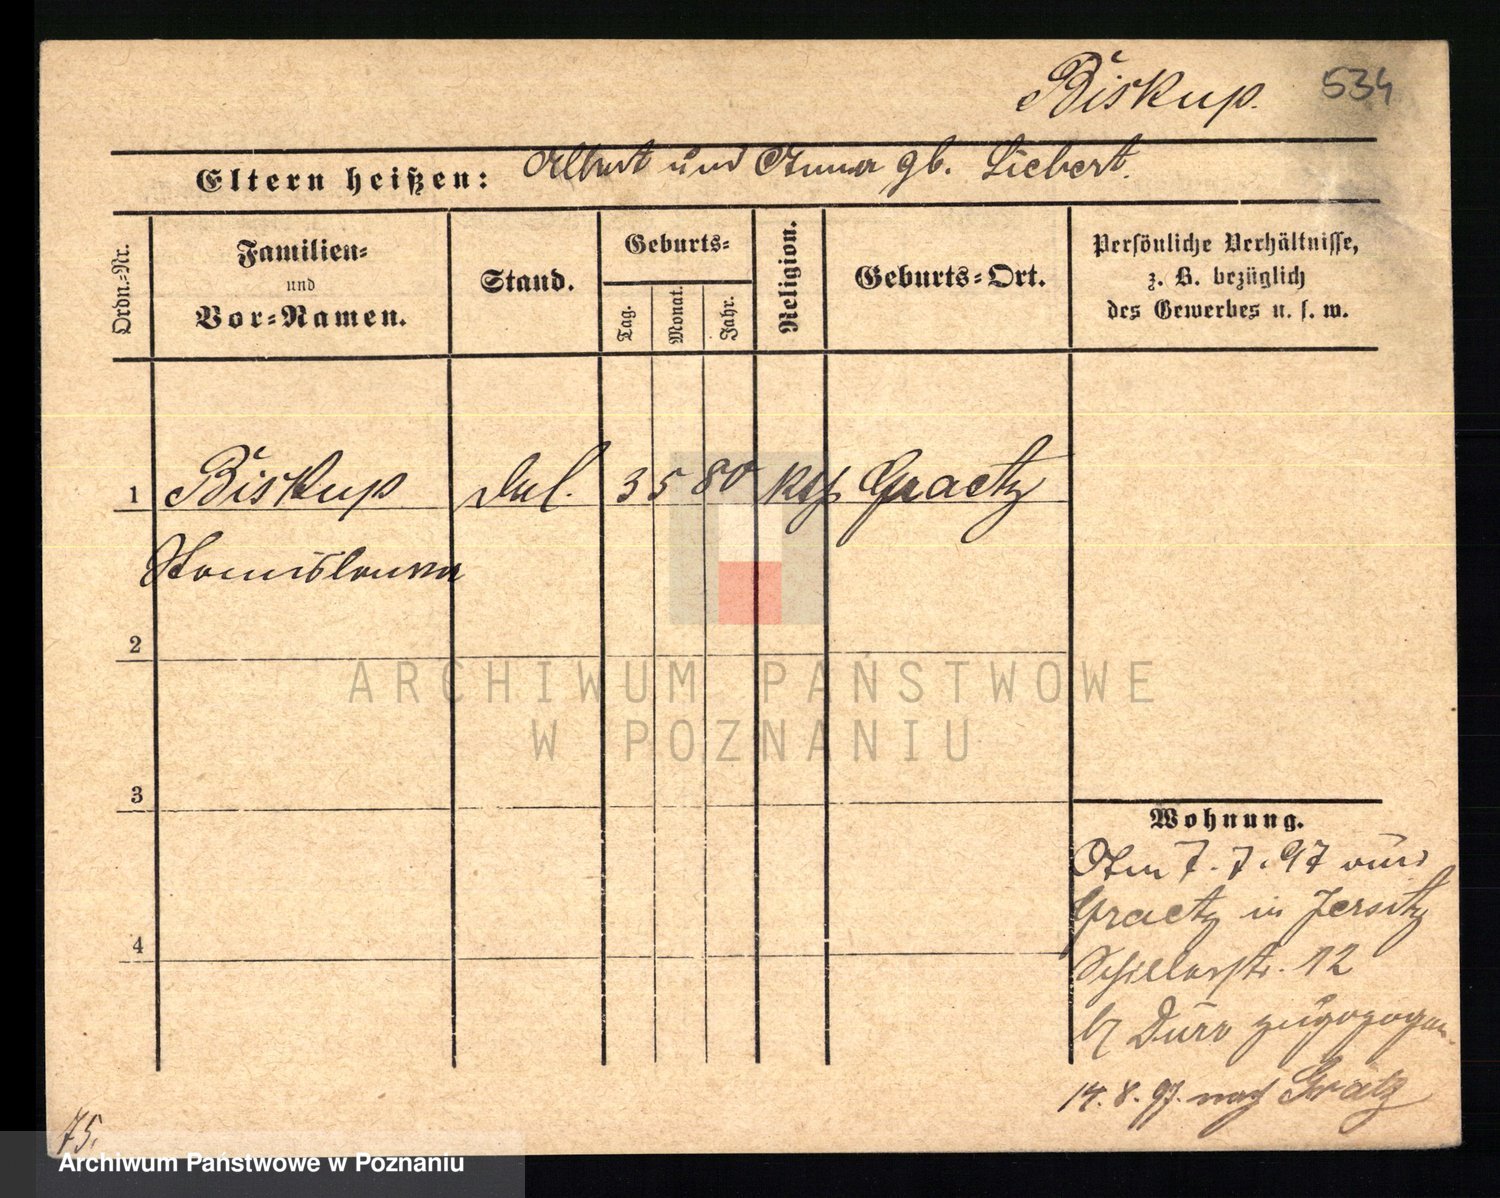 Biskup.
534
Eltern heißen: Albert und Anna gb. Liebert.
Ordn.-Nr.
Familien-
und
Vor-Namen.
Stand.
Geburts-
Tag.
Monat.
Jahr.
Religion.
Geburts-Ort.
Persönliche Verhältnisse,
z. B. bezüglich
des Gewerbes u. s. w.
1 Biskup led. 3 5 80 kth Graetz
Stanislawa
2
ARCHIWUM PAŃSTWOWE
W POZNANIU
3
Wohnung.
Am 7.7.97 aus
Graetz in Jersitz
Schillerstr. 12
b/ zugezogen.
4
14.8.97. nach Grätz
75.
Archiwum Państwowe w Poznaniu